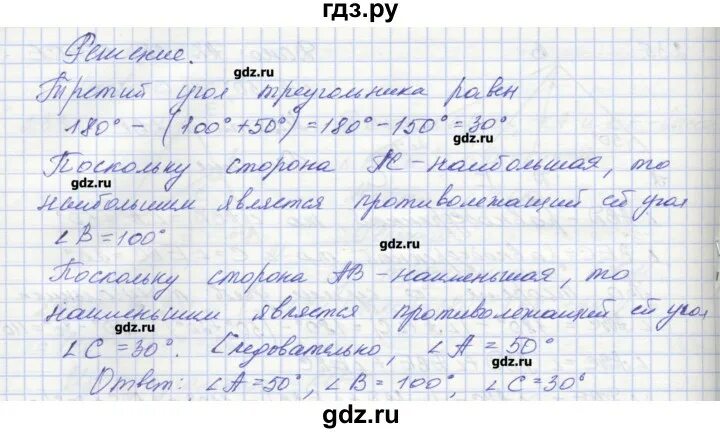 гдз.ру
Решение.
gdz.ru
Третий угол треугольника равен
180° - (100° + 50°) = 180° - 150° = 30°
gdz.ru
Поскольку сторона AC - наибольшая, то
gdz.ru
наибольшим является противолежащий ей угол
gdz.ru
∠B = 100°
Поскольку сторона AB - наименьшая, то
gdz.ru
наименьшим является противолежащий ей угол
gdz.ru
∠C = 30°. Следовательно, ∠A = 50°
gdz.ru
Ответ: ∠A = 50°, ∠B = 100°, ∠C = 30°
gdz.ru